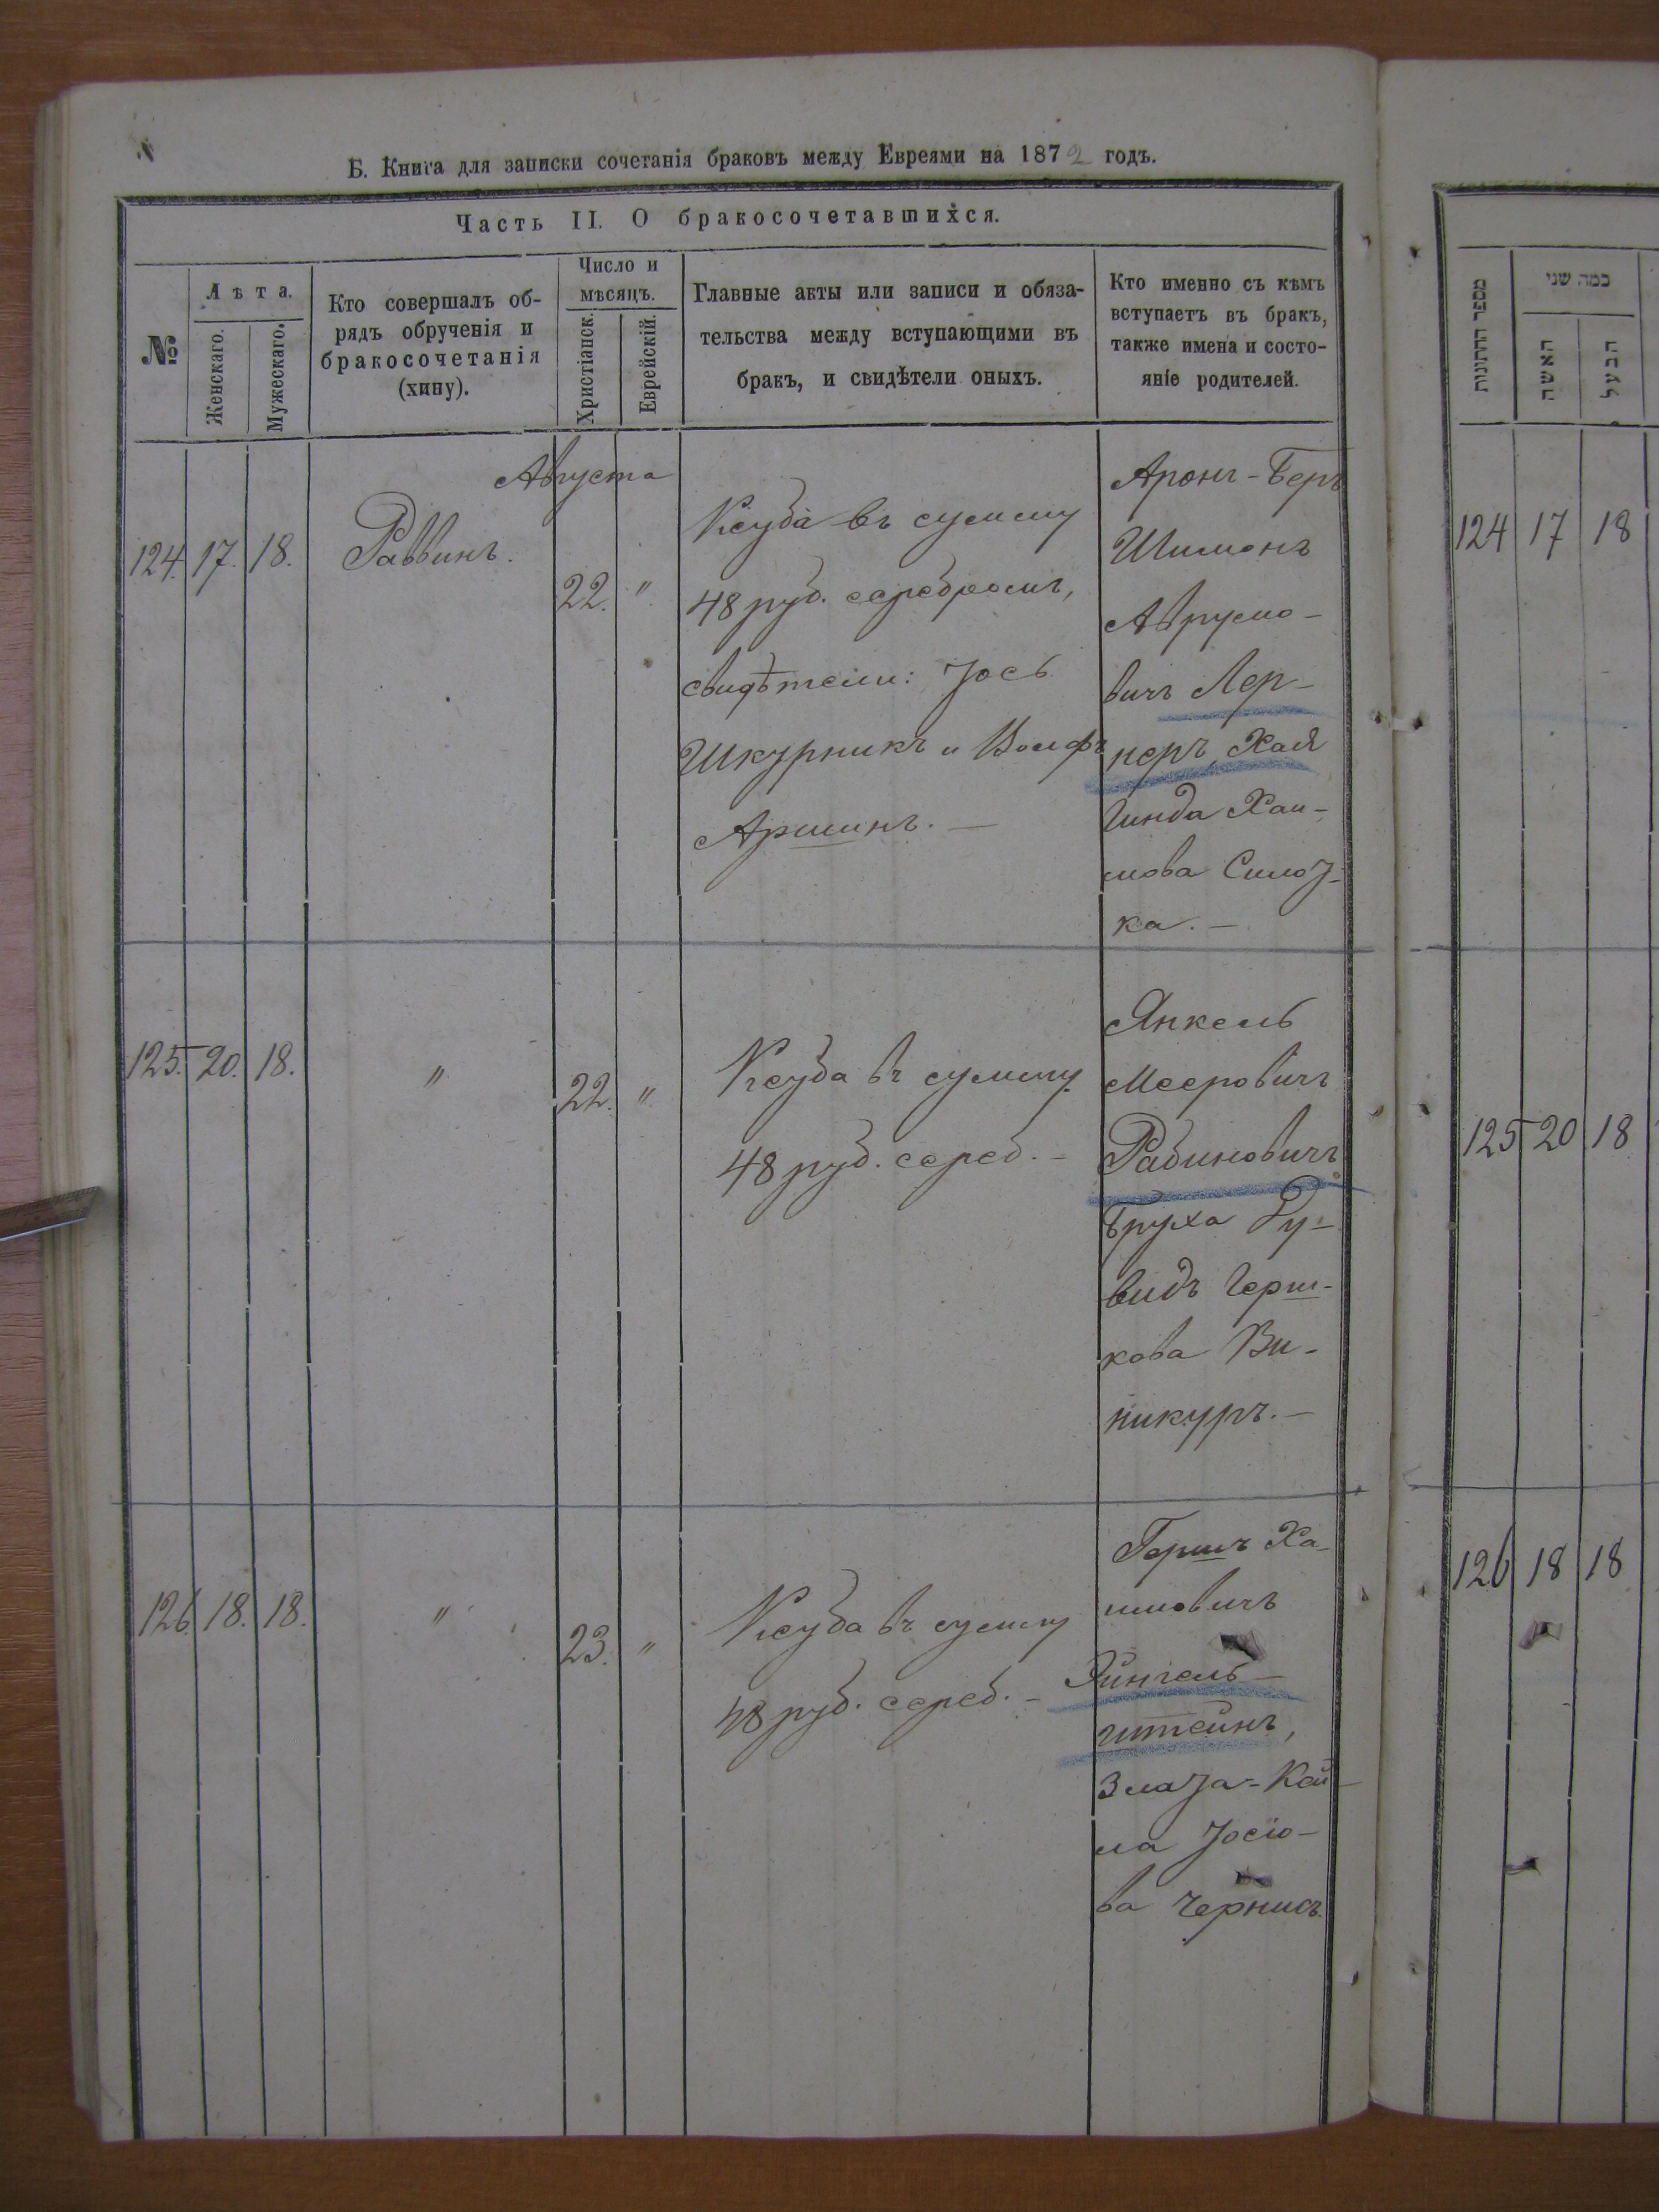 Б. Книга для записки сочетанія браковъ между Евреями на 1872 годъ.
Часть II. О бракосочетавшихся.
№
Лѣта.
Женскаго.
Мужескаго.
Кто совершалъ об-
рядъ обрученія и
бракосочетанія
(хипу).
Число и
мѣсяцъ.
Христіанск.
Еврейскій.
Главные акты или записи и обяза-
тельства между вступающими въ
бракъ, и свидѣтели оныхъ.
Кто именно съ кѣмъ
вступаетъ въ бракъ,
также имена и состо-
яніе родителей.
Августа
124. 17. 18. Раввинъ. 22. "
Ксуба въ сумму
48 руб. серебромъ,
свидѣтели: Іось
Шкурникъ и Вольфъ
Аршинъ. —
Аронъ-Беръ
Шимонъ
Аврумо-
вичъ Лер-
неръ, Хая
Гинда Хаи-
мова Смоз-
ка. —
125. 20. 18. " 22. "
Ксуба въ сумму
48 руб. сереб. —
Янкель
Мееровичъ
Рабиновичъ
Бруха Ру-
видъ Герш-
кова Ви-
никуръ. —
126. 18. 18. " 23. "
Ксуба въ сумму
48 руб. сереб. —
Гершъ Ха-
имовичъ
штейнъ,
Злата-Кей-
ла Іосіо-
ва Чернисъ.
מספר החתונות
כמה שני
האשה
הבעל
124 17 18
125 20 18
126 18 18